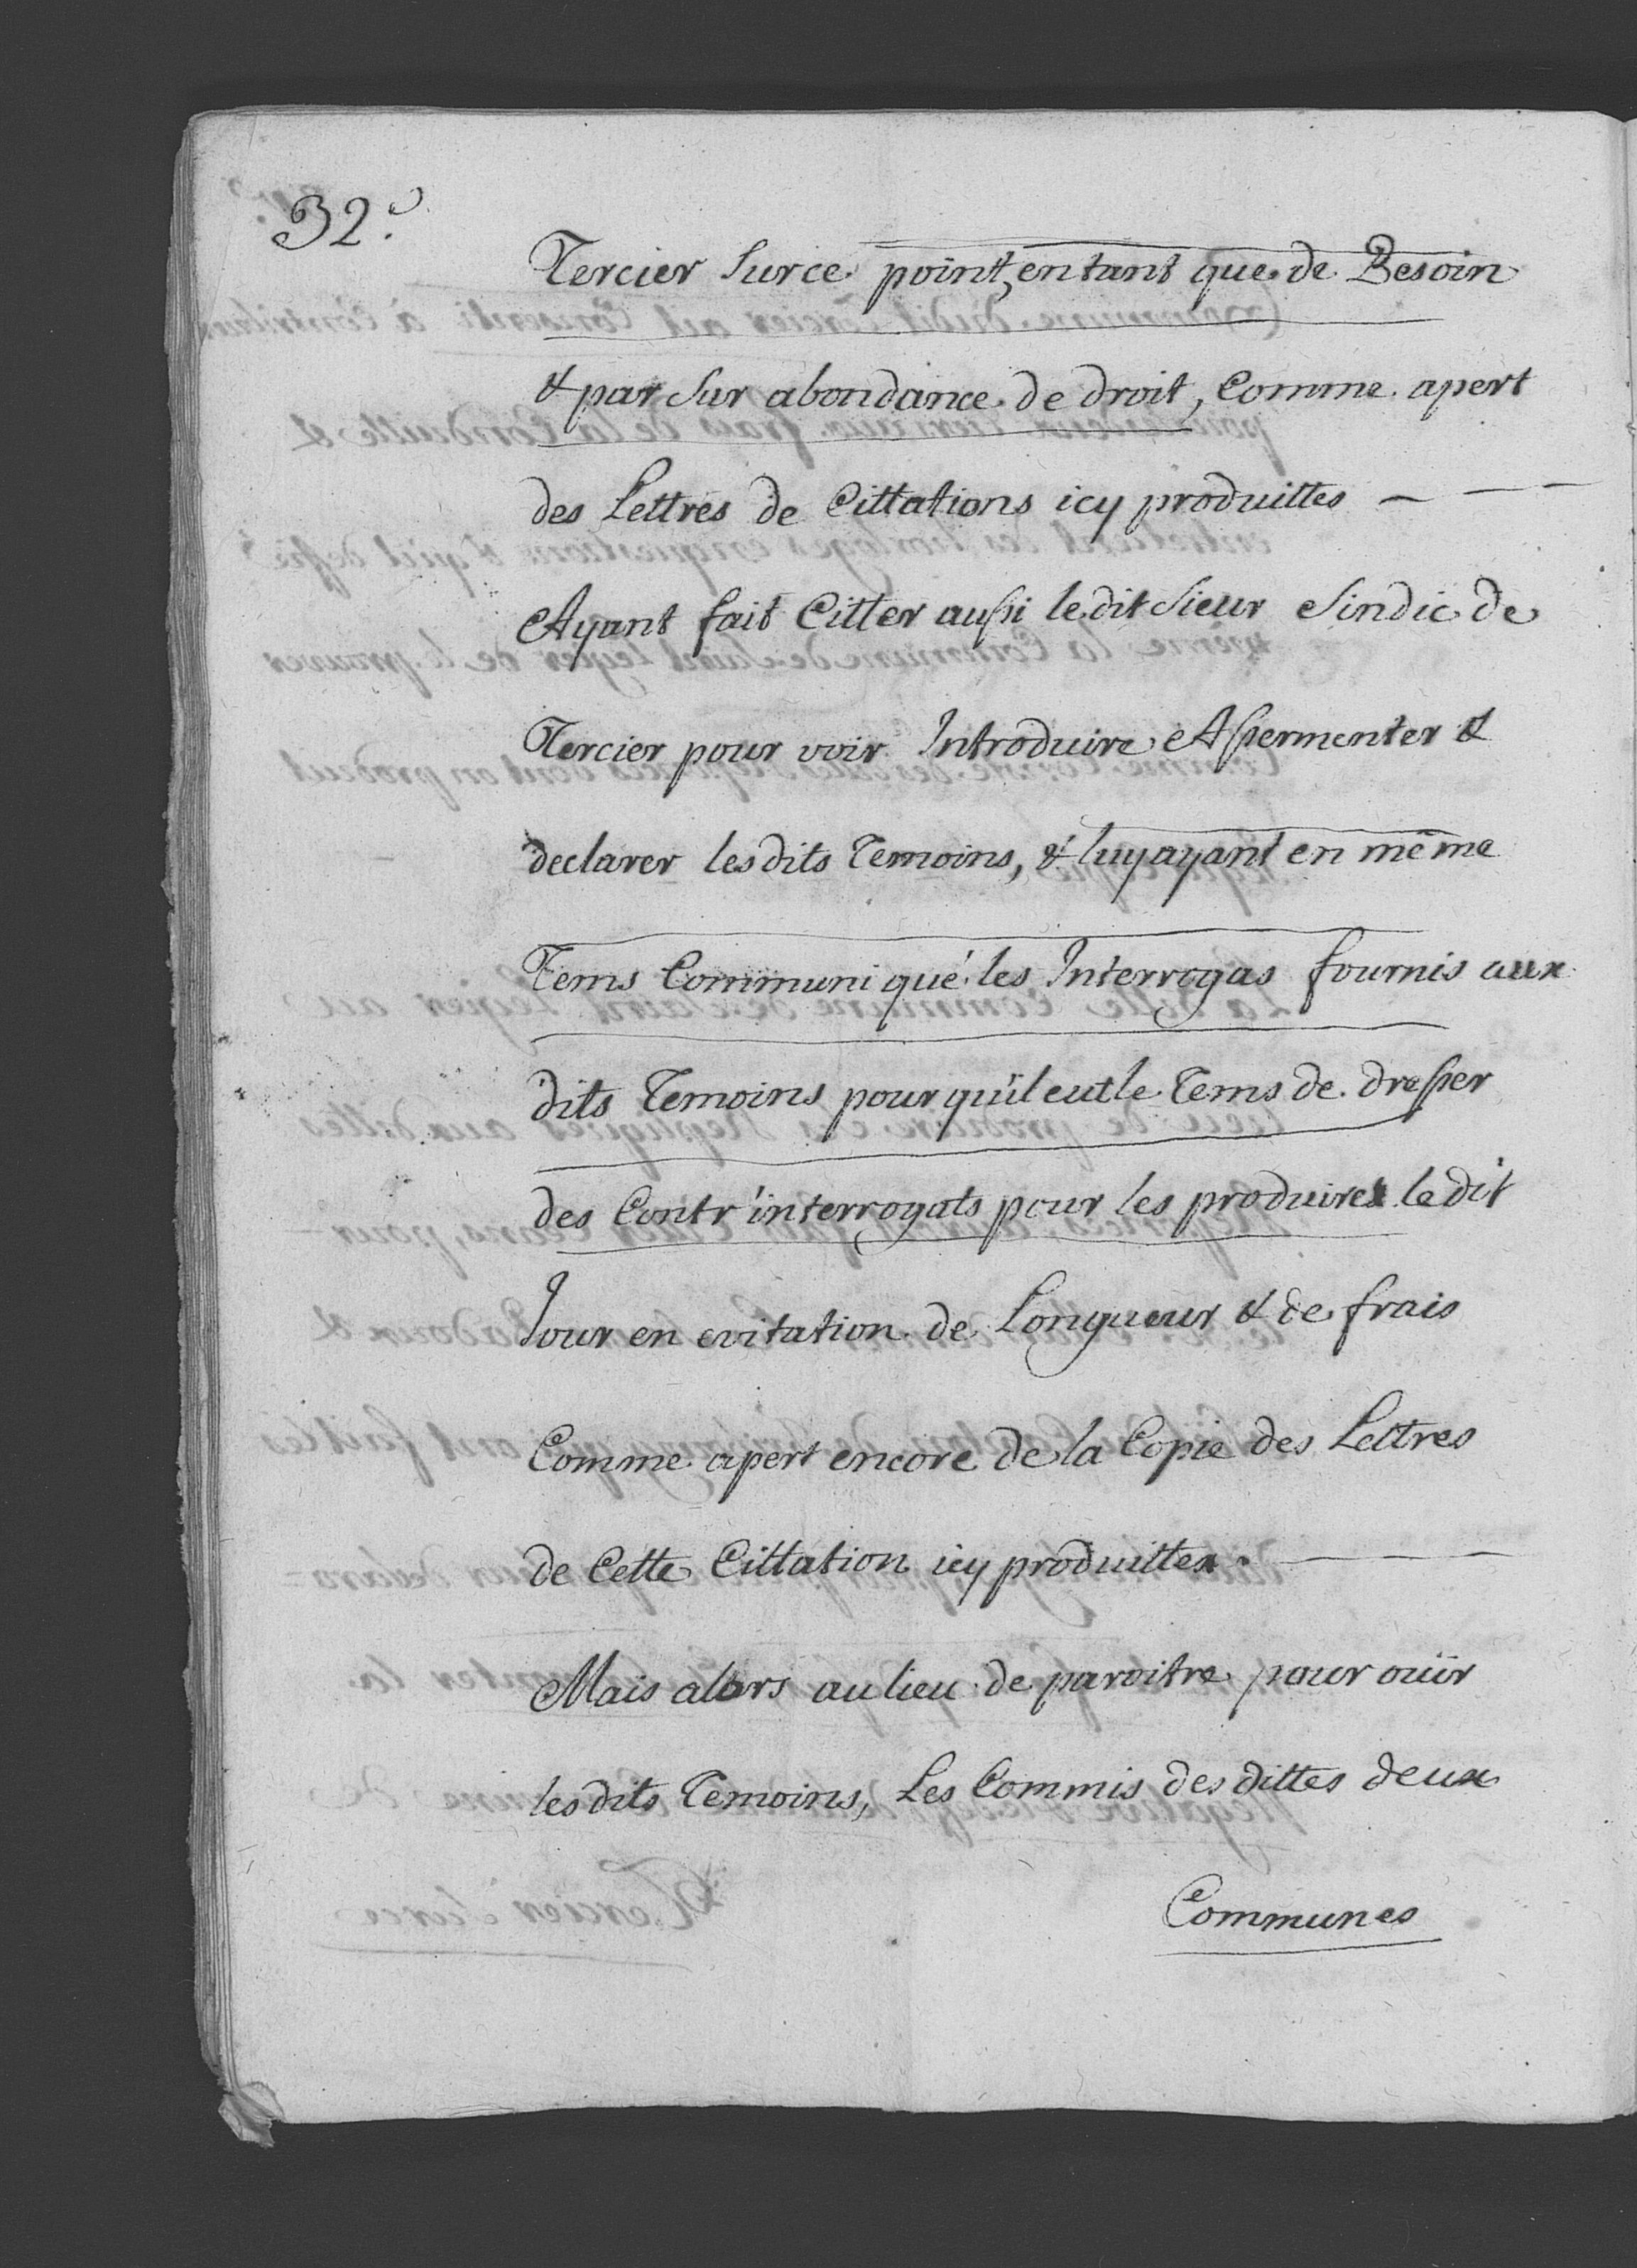 32.
Tercier Surce point, entant que de Besoin
& par Sur abondance de droit, Comme apert
des Lettres de Cittations icy produittes — — —
Ayant fait Citter aussi ledit Sieur Sindic de
Tercier pour voir Introduire Assermenter &
declarer lesdits Temoins, & luy ayant en même
Tems Communiqué les Interrogas fournis aux
dits Temoins pour qu'il eut le Tems de dresser
des Contr'interrogats pour les produire le dit
Jour en evitation de Longueur & de frais
Comme apert encore de la Copie des Lettres
de Cette Cittation icy produitte. — — —
Mais alors au lieu de paroitre pour ouïr
lesdits Temoins, Les Commis desdittes deux
Communes